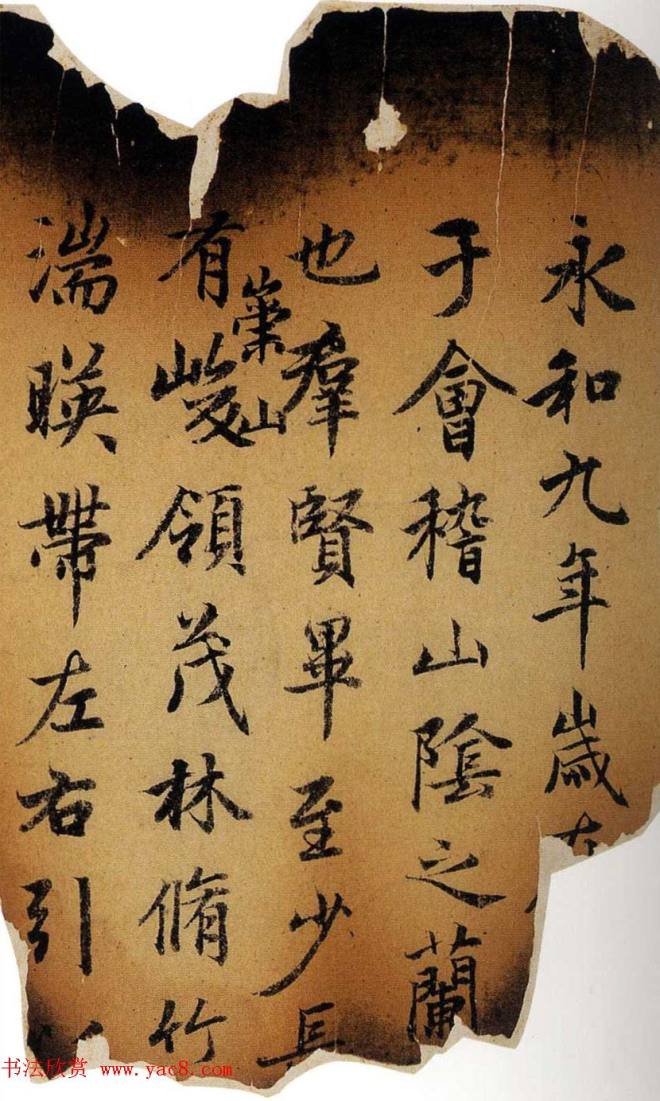 永和九年歲在
于會稽山陰之蘭
也羣賢畢至少長
有崇山峻領茂林脩竹
湍暎帶左右引以
书法欣赏 www.yac8.com